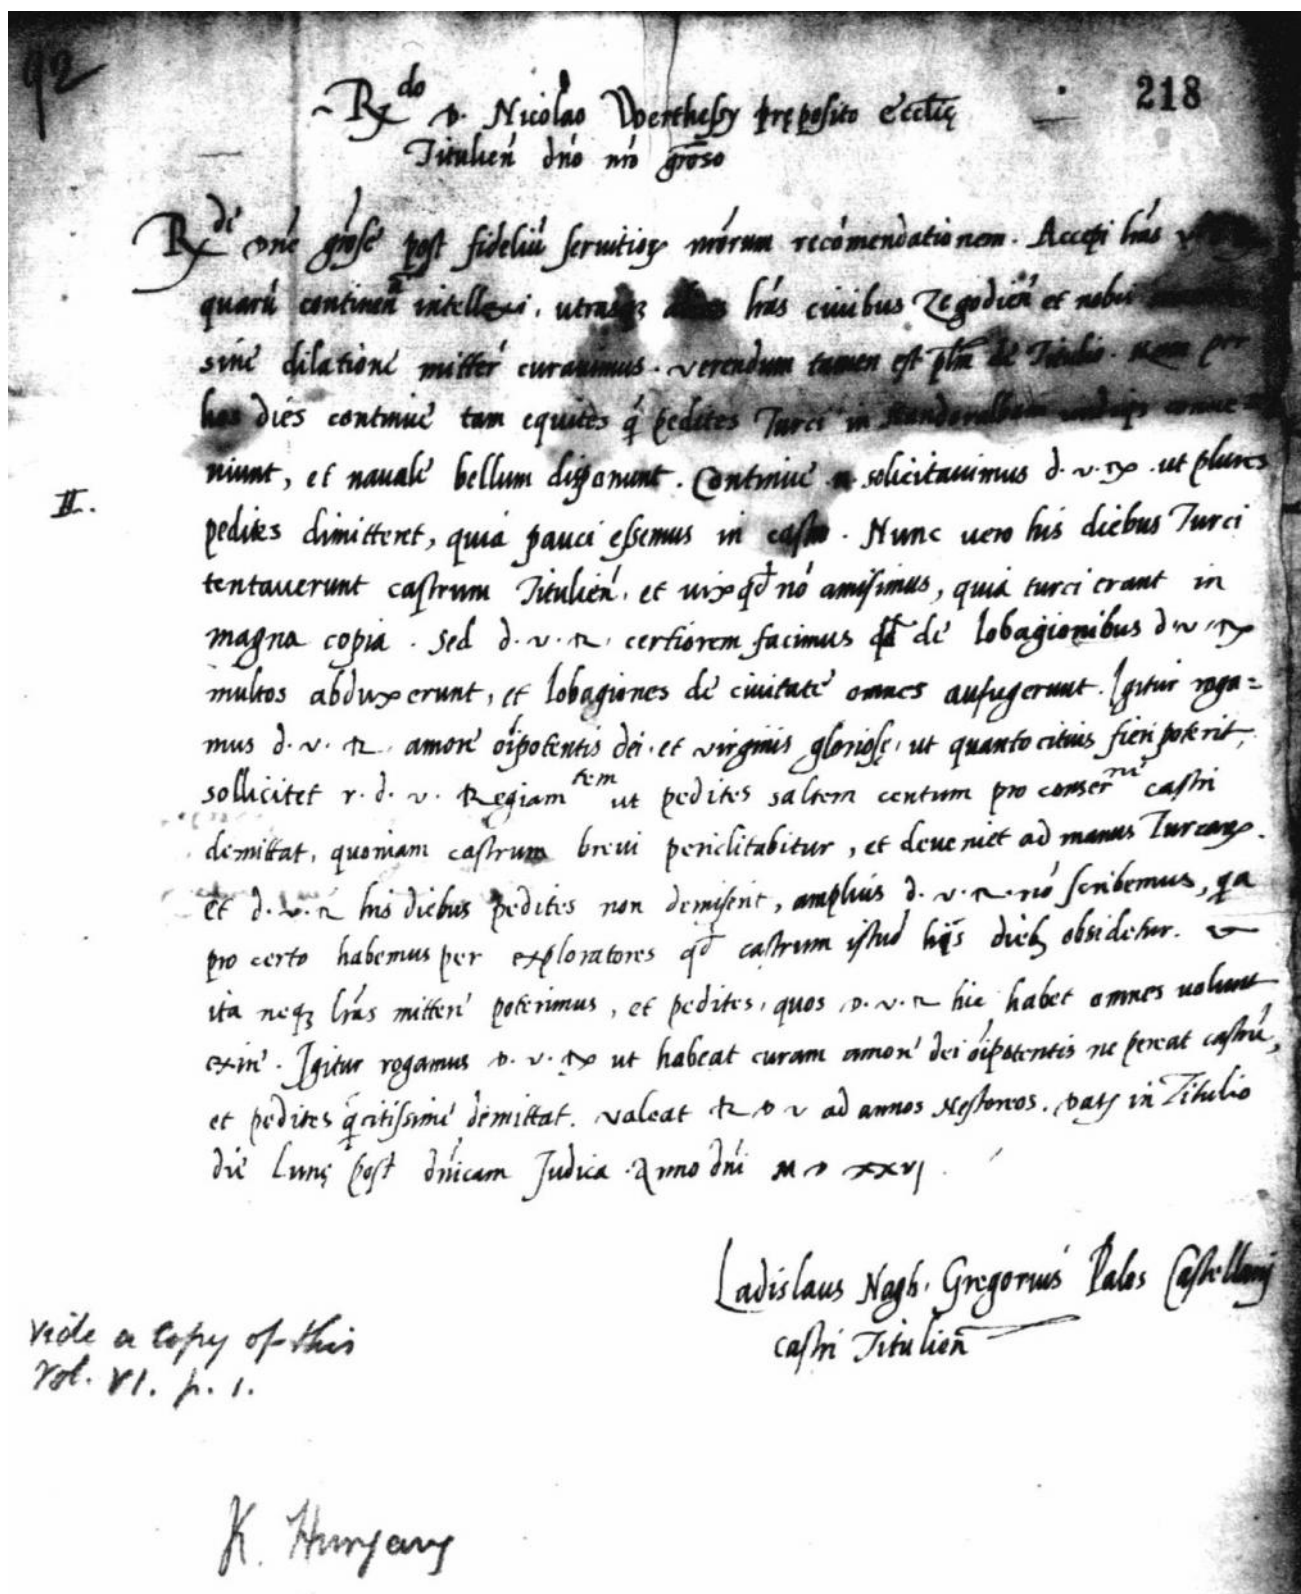 92
218
R.do D. Nicolao Werthessy pręposito Ecclię
Titulień dńo nŕo grōso
R.dé Dńe gróse post fideliū seruitioꝝ nŕorum recōmendationem. Accepi lŕas
quarū continen̄ intellexi, utrasqꝫ lŕas ciuibus Zegodień et nobis
sine dilatione mitter curauimus. verendum tamen est plm̄ de Titulio. nam per
hos dies continue tam equites q̄ pedites Turci in Nandoralbam undiqꝫ conue=
niunt, et nauale bellum disponunt. Continue solicitauimus d. v. R. ut plures
pedites dimitteret, quia pauci essemus in castro. Nunc uero his diebus Turci
tentauerunt castrum Titulień, et uix qd̄ nō amisimus, quia turci erant in
magna copia. Sed d. v. R. certiorem facimus qd̄ de Iobagionibus d. v. R.
multos abduxerunt, et Iobagiones de ciuitate omnes aufugerunt. Igitur roga=
mus d. v. R. amore oīpotentis dei et virginis gloriosę, ut quanto citius fieri poterit,
sollicitet r. d. v. Regiam tem ut pedites saltem centum pro conser ne castri
demittat, quoniam castrum breui periclitabitur, et deueniet ad manus Turcarꝝ.
et d. v. R. his diebus pedites non demiserit, amplius d. v. R. nō scribemus, qa
pro certo habemus per exploratores qd̄ castrum istud hijs diebꝫ obsidetur.
ita neqꝫ lŕas mittere poterimus, et pedites, quos D. v. R. hic habet omnes uolunt
exire. Igitur rogamus D. v. R. ut habeat curam amore dei oīpotentis ne pereat castrū,
et pedites q̄citissime demittat. valeat R. D. v. ad annos Nestoreos. Datꝫ in Titulio
die Lunę post dńicam Judica. Anno dńi M D XXVI.
II.
Ladislaus Nagh, Gregorius Palos Castellani
castri Titulień
vide a copy of this
vol. VI. p. 1.
K. Hungary